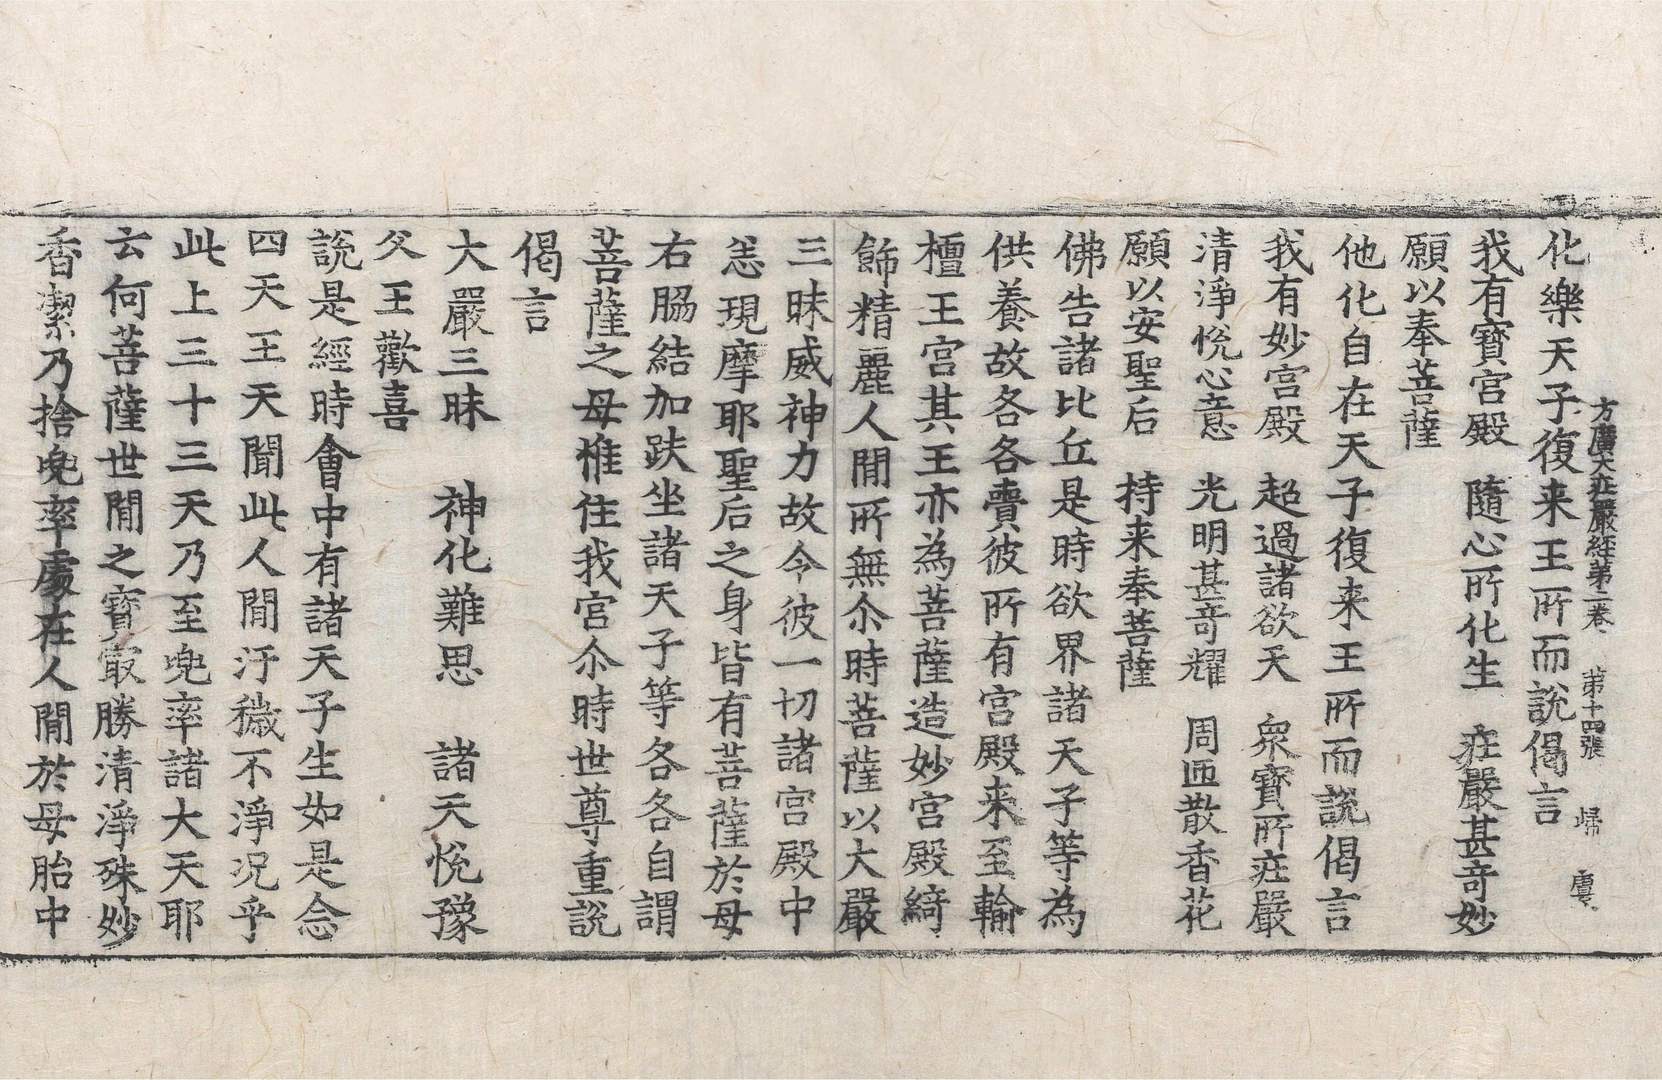 方廣大莊嚴經第二卷 第十四張 歸 虞
化樂天子復来王所而說偈言
我有寶宮殿 隨心所化生 莊嚴甚奇妙
願以奉菩薩
他化自在天子復来王所而說偈言
我有妙宮殿 超過諸欲天 衆寶所莊嚴
清淨悅心意 光明甚奇耀 周匝散香花
願以安聖后 持来奉菩薩
佛告諸比丘是時欲界諸天子等為
供養故各各賣彼所有宮殿来至輸
檀王宮其王亦為菩薩造妙宮殿綺
飾精麗人間所無尒時菩薩以大嚴
三昧威神力故令彼一切諸宮殿中
悉現摩耶聖后之身皆有菩薩於母
右脇結加趺坐諸天子等各各自謂
菩薩之母惟住我宮尒時世尊重說
偈言
大嚴三昧 神化難思 諸天悅豫
父王歡喜
說是經時會中有諸天子生如是念
四天王天聞此人間汙穢不淨况乎
此上三十三天乃至兜率諸大天耶
云何菩薩世間之寶㝡勝清淨殊妙
香潔乃捨兜率處在人間於母胎中